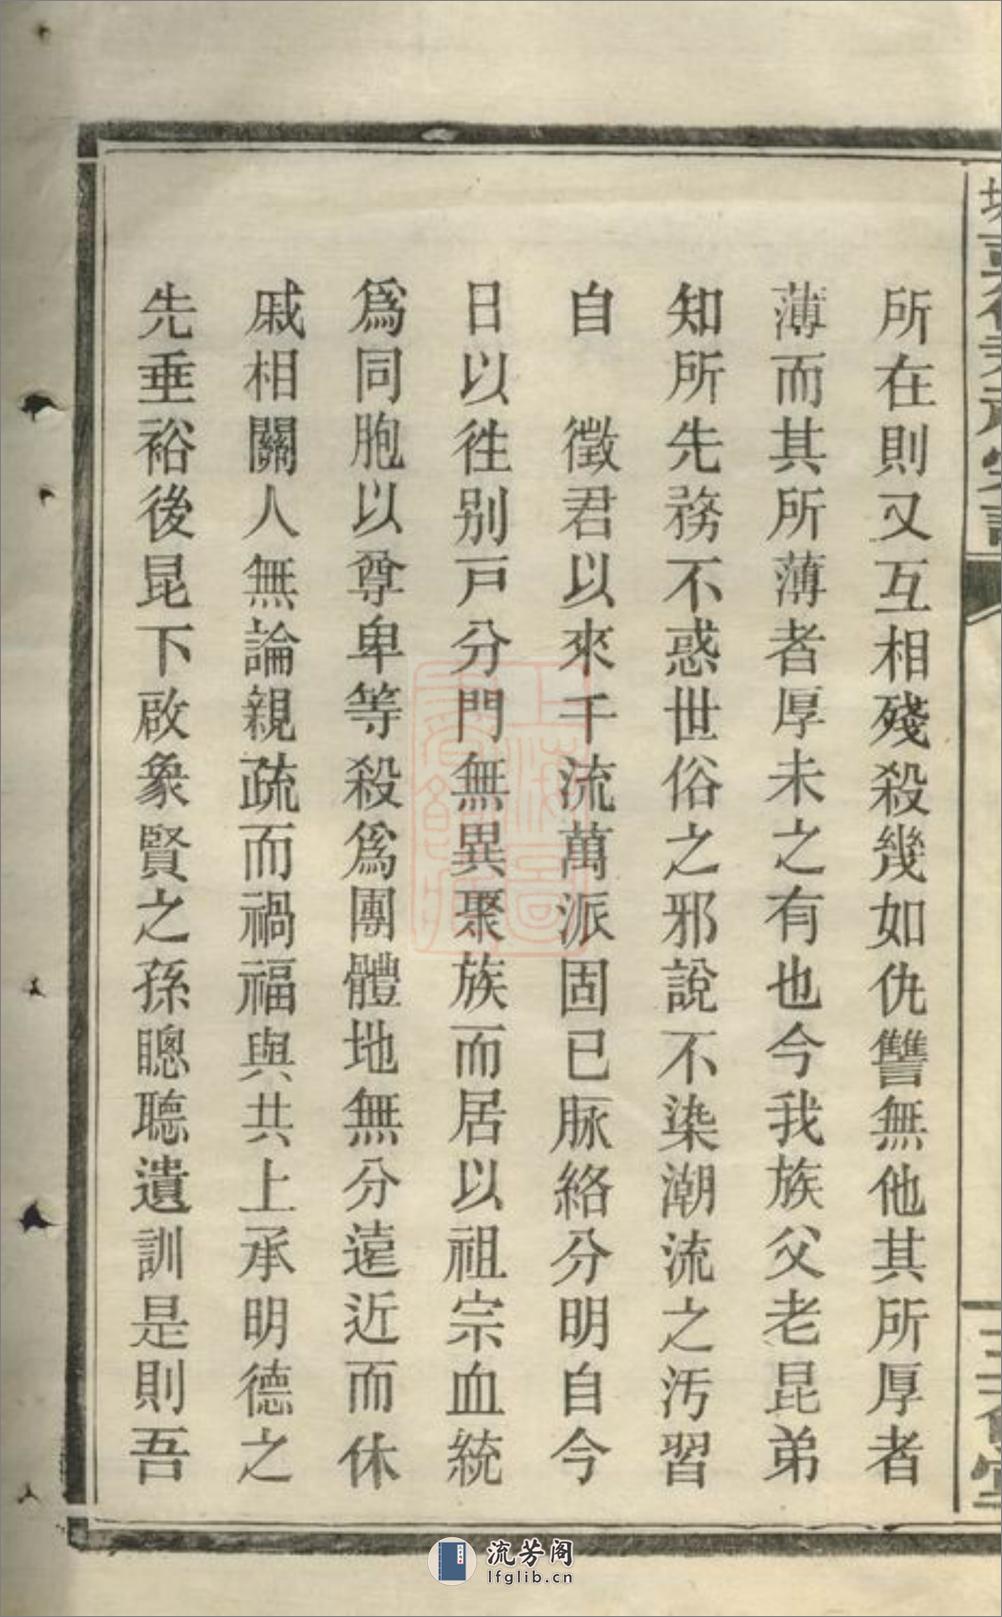 所在則又互相殘殺幾如仇讐無他其所厚者
薄而其所薄者厚未之有也今我族父老昆弟
知所先務不惑世俗之邪說不染潮流之汚習
自　徵君以來千流萬派固已脉絡分明自今
日以徃别戸分門無異聚族而居以祖宗血統
爲同胞以尊卑等殺爲團體地無分遠近而休
戚相關人無論親疏而禍福與共上承明德之
先垂裕後昆下啟象賢之孫聰聽遺訓是則吾
流芳阁
lfglib.cn